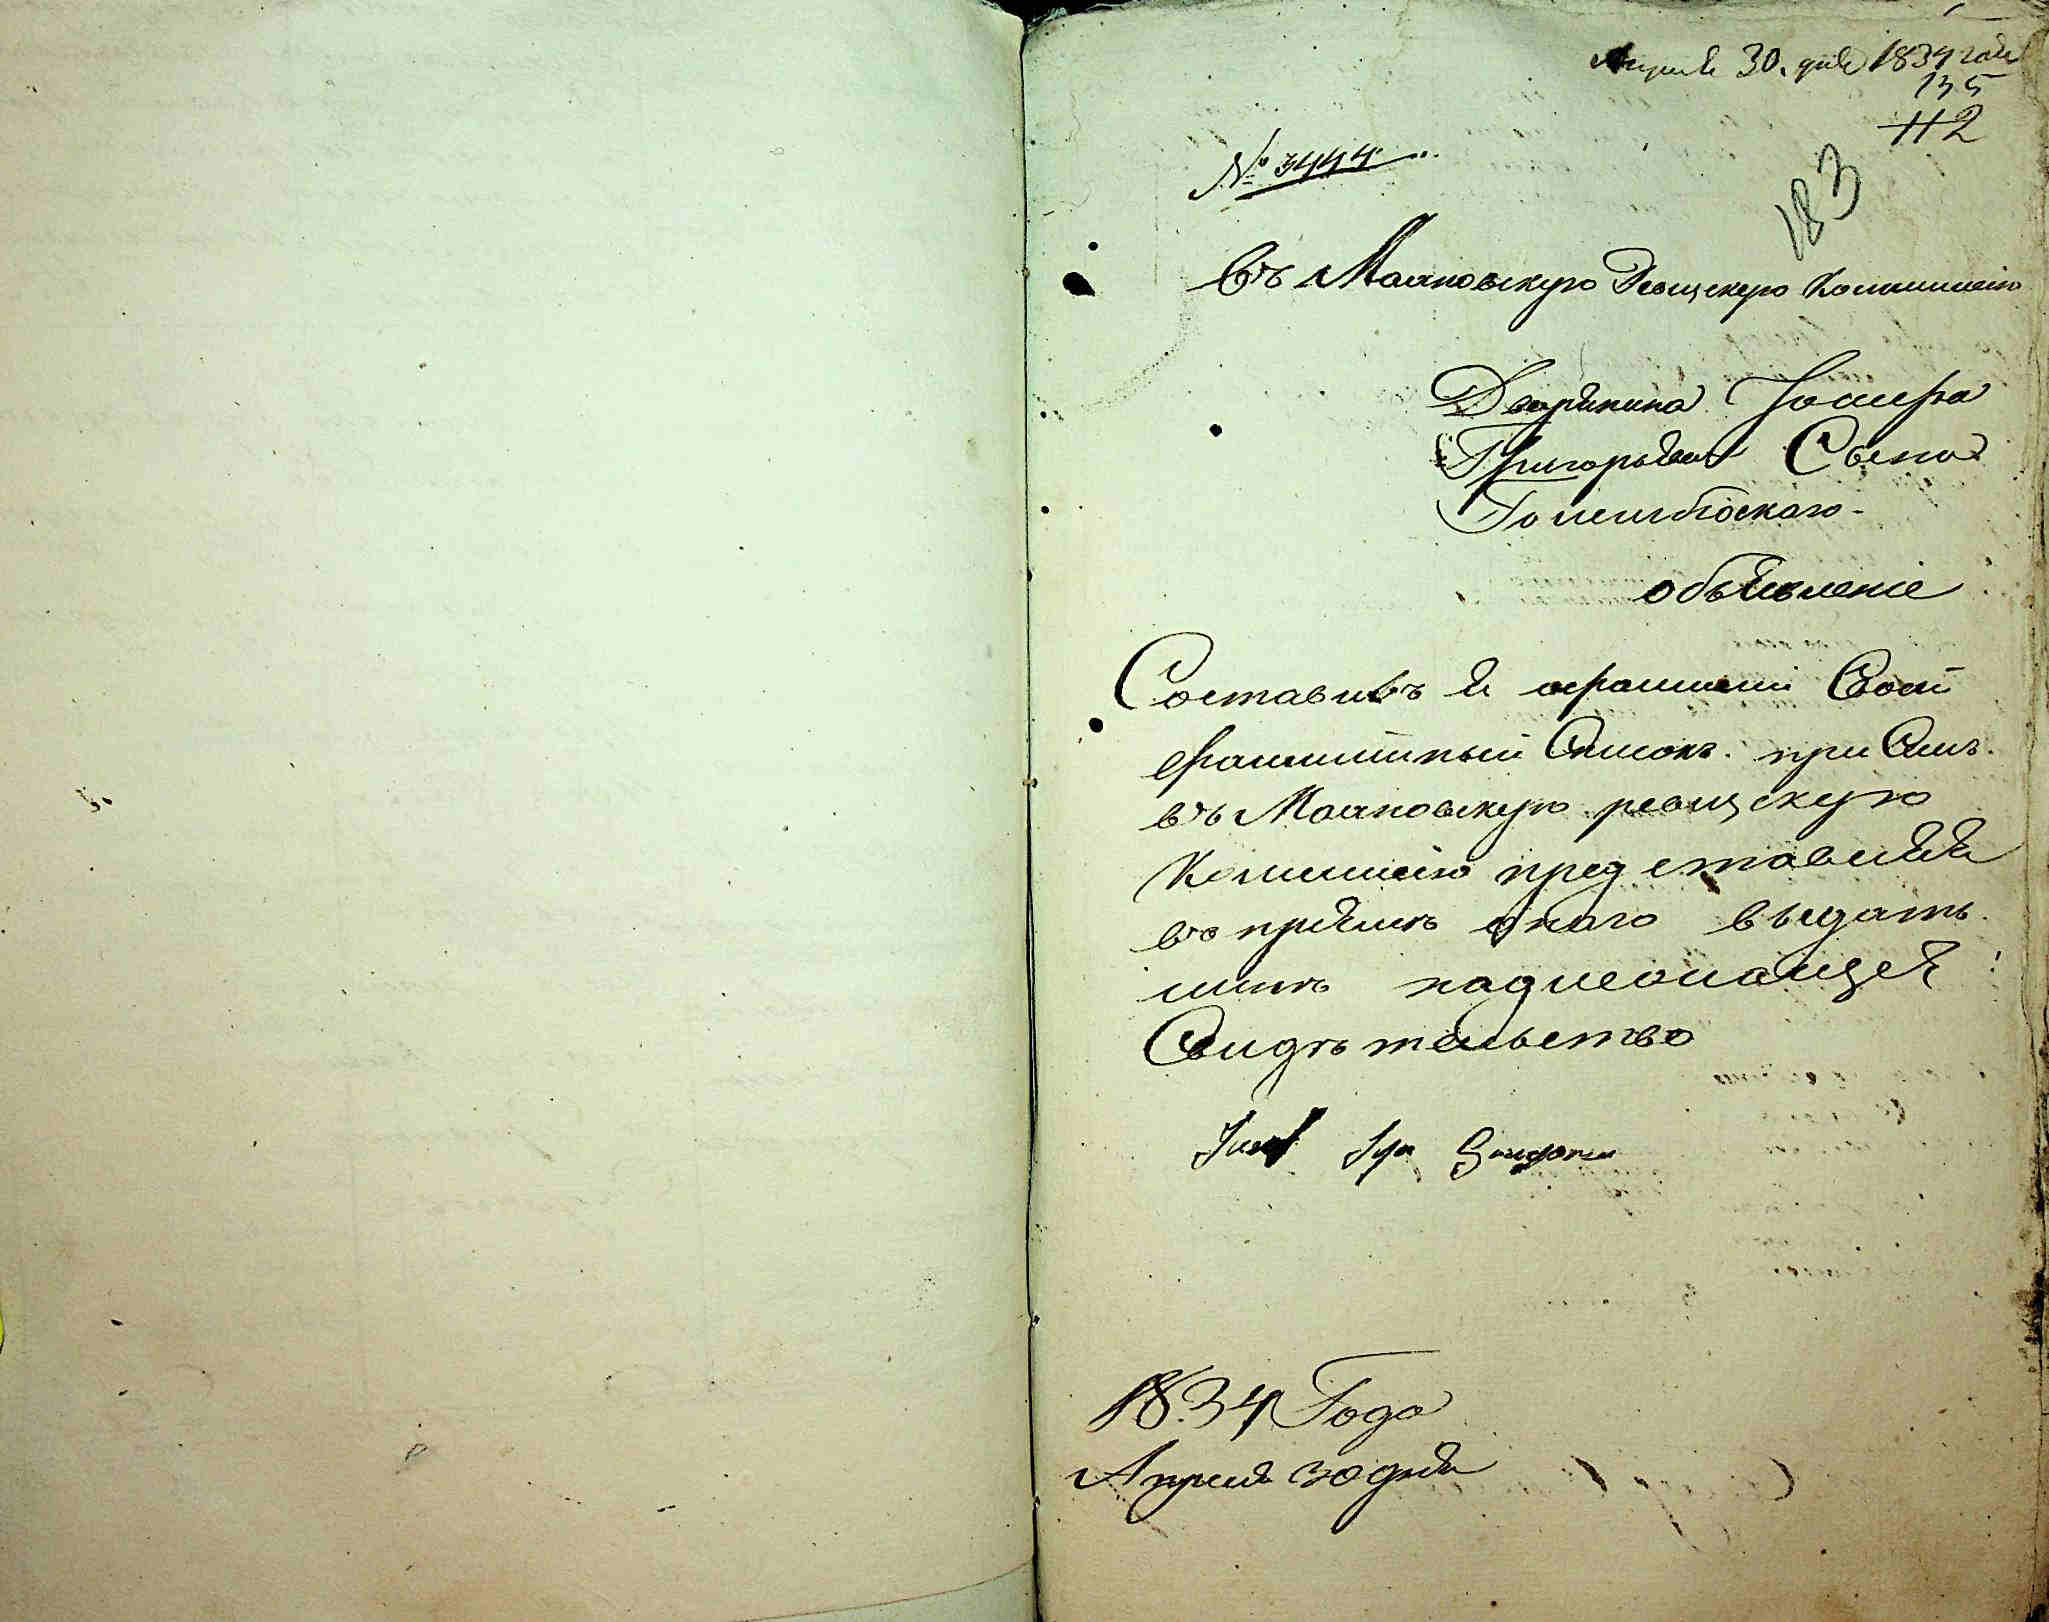 Апреля 30. дня 1834 года
135
112
183
№ 3444
Въ Маяновскую Ревискую Комисию
Дворянина Іосифа
Григорьева Сына
Голембіоскаго-
объявленіе
Составивъ я о фамилии Своей
фамилийный Списокъ. при Симъ.
въ Маяновскую ревискую
Комисию представляя
въ приемъ онаго выдать
мнѣ надлежащее
Свидѣтельство
Syn
1834 Года
Апреля 30 дня